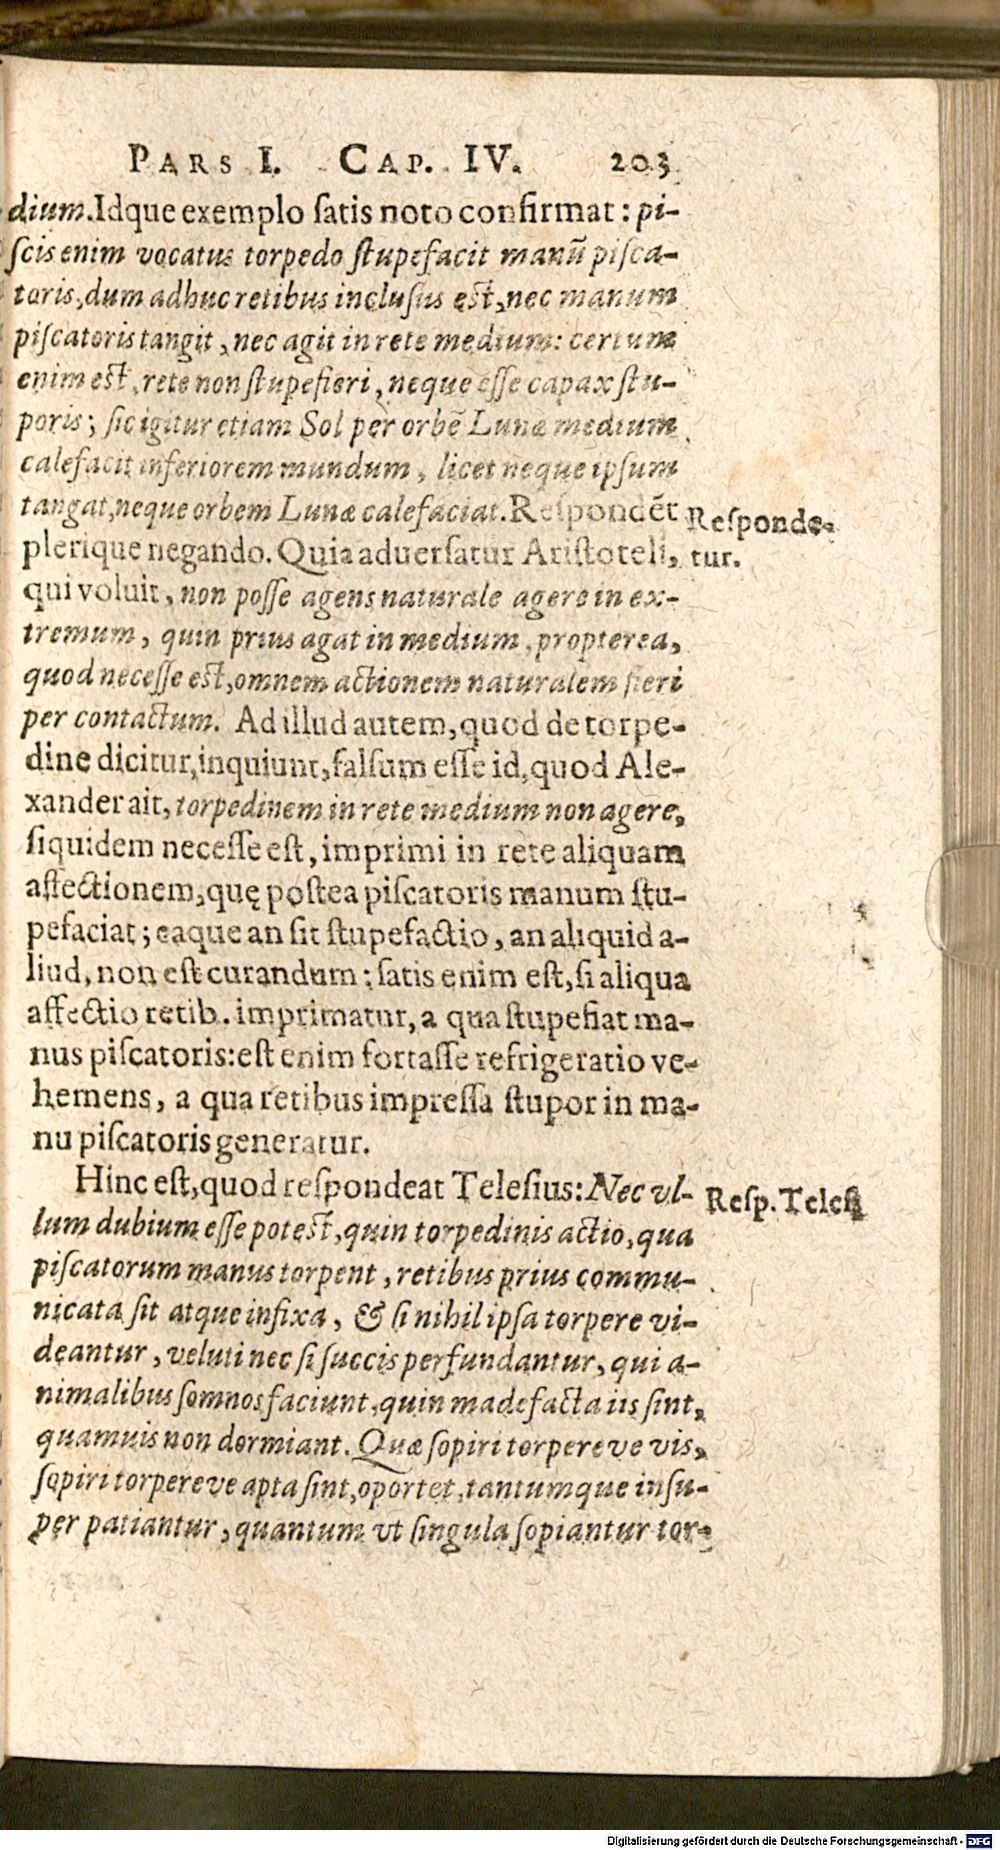 PARS I. CAP. IV. 203
dium. Idque exemplo ſatis noto confirmat: pi-
ſcis enim vocatus torpedo ſtupefacit manū piſca-
toris, dum adhuc retibus incluſus eſt, nec manum
piſcatoris tangit, nec agit in rete medium: certum
enim eſt, rete non ſtupefieri, neque eſſe capax ſtu-
poris; ſic igitur etiam Sol per orbē Lunæ medium
calefacit inferiorem mundum, licet neque ipſum
tangat, neque orbem Lunæ calefaciat. Reſpondēt
Reſponde-
tur.
plerique negando. Quia aduerſatur Ariſtoteli,
qui voluit, non poſſe agens naturale agere in ex-
tremum, quin prius agat in medium, propterea,
quod neceſſe eſt, omnem actionem naturalem fieri
per contactum. Ad illud autem, quod de torpe-
dine dicitur, inquiunt, falſum eſſe id, quod Ale-
xander ait, torpedinem in rete medium non agere,
ſiquidem neceſſe eſt, imprimi in rete aliquam
affectionem, quę poſtea piſcatoris manum ſtu-
pefaciat; eaque an ſit ſtupefactio, an aliquid a-
liud, non eſt curandum: ſatis enim eſt, ſi aliqua
affectio retib. imprimatur, a qua ſtupefiat ma-
nus piſcatoris: eſt enim fortaſſe refrigeratio ve-
hemens, a qua retibus impreſſa ſtupor in ma-
nu piſcatoris generatur.
Hinc eſt, quod reſpondeat Teleſius: Nec vl-
Reſp. Teleſi
lum dubium eſſe poteſt, quin torpedinis actio, qua
piſcatorum manus torpent, retibus prius commu-
nicata ſit atque infixa, & ſi nihil ipſa torpere vi-
deantur, veluti nec ſi ſuccis perfundantur, qui a-
nimalibus ſomnos faciunt, quin madefacta iis ſint,
quamuis non dormiant. Quæ ſopiri torpereve vis,
ſopiri torpereve apta ſint, oportet, tantumque inſu-
per patiantur, quantum vt ſingula ſopiantur tor-
Digitalisierung gefördert durch die Deutsche Forschungsgemeinschaft - DFG